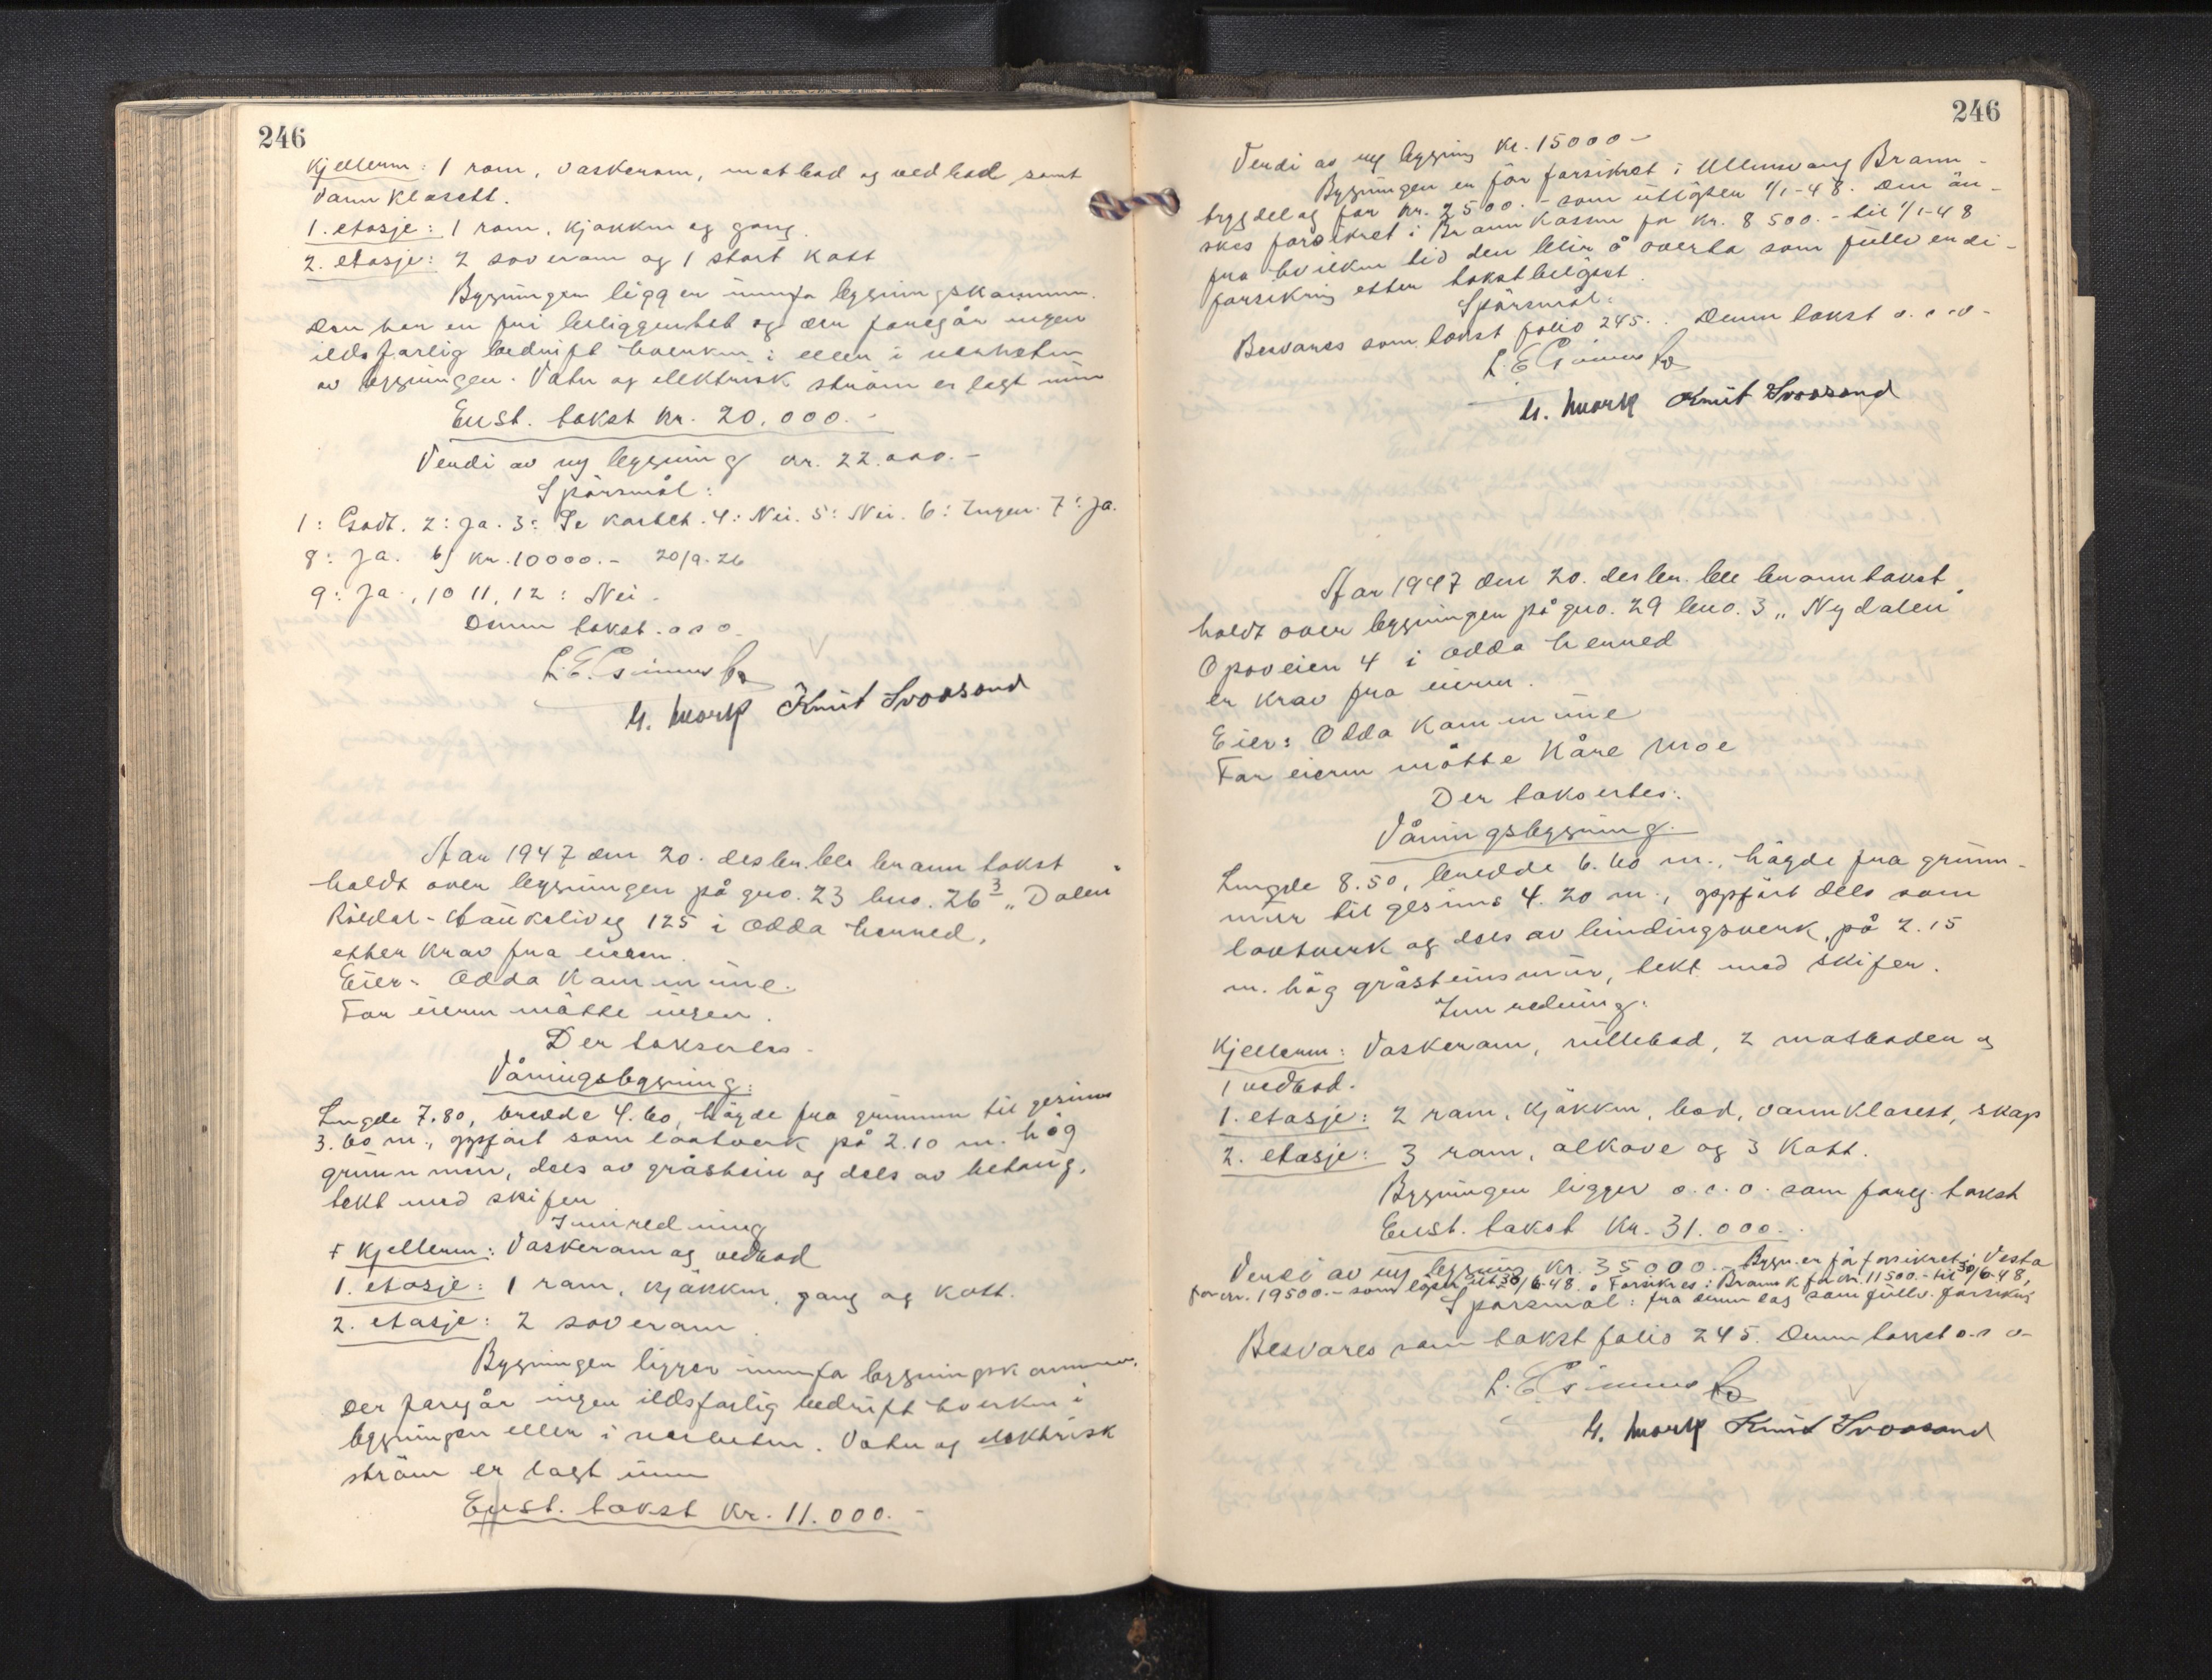 246
Kjelleren: 1 rom, vaskerom, matbod og vedbod samt
vannklosett.
1. etasje: 1 rom, kjøkken og gang.
2. etasje: 2 soverom og 1 stort kott
Bygningen ligger innafor bygningskommunen.
Den har en fri beliggenhet og der foregår ingen
ildsfarlig bedrift hverken i eller i nærheten
av bygningen. Vatn og elektrisk strøm er lagt inn
Enst. takst kr. 20.000.-
Verdi av ny bygning kr. 22.000.-
Spørsmål:
1: Godt. 2: Ja. 3: Se kartet. 4: Nei. 5: Nei. 6: Ingen. 7: Ja.
8: Ja. b) kr. 10000.- 20/9.26
9: Ja., 10 11, 12: Nei.
Denne takst o s o.
M. Mork Knut Svoasand
Aar 1947 den 20. desbr. ble branntakst
holdt over bygningen på gno. 23 bno. 26 3 "Dalen"
Röldal-Haukeliveg 125 i Odda herred,
etter krav fra eieren.
Eier: Odda Kommune.
For eieren møtte ingen.
Der takseres.
Våningsbygning:
Lengde 7.80, bredde 4.60, høyde fra grunnmur til gesims
3.60 m., oppført som laftverk på 2.10 m. høg
grunnmur, dels av gråstein og dels av betong,
tekt med skifer
Innredning
+ Kjelleren: Vaskerom og vedbod
1. etasje: 1 rom, kjøkken, gang og kott.
2. etasje: 2 soverom.
Bygningen ligger innafor bygningskommunen.
Der foregår ingen ildsfarlig bedrift hverken i
bygningen eller i nærheten. Vatn og elektrisk
strøm er lagt inn
Enst. takst kr. 11.000.-
246
Verdi av ny bygning kr. 15000-
Bygningen er før forsikret i Ullensvang Brann-
trygdelag for kr. 2500.- som utløper 1/1-48. Den øn-
skes forsikret i Brannkassen for kr. 8500.- til 1/1-48
fra hvilken tid den blir å overta som fullverdi-
forsikring etter takstbeløpet.
Spørsmål:
Besvares som takst folio 245. Denne takst o. s. o-
M. Mork Knut Svoasand
Aar 1947 den 20. desbr. ble branntakst
holdt over bygningen på gno. 29 bno. 3 "Nydalen"
Opoveien 4 i Odda herred
er krav fra eieren.
Eier: Odda Kommune
For eieren møtte Kåre Moe
Der takseres:
Våningsbygning.
Lengde 8.50, bredde 6.60 m., høyde fra grunn-
mur til gesims 4.20 m., oppført dels som
laftverk og dels av bindingsverk, på 2.15
m. høg gråsteinsmur, tekt med skifer.
Innredning:
Kjelleren: Vaskerom, rullebod, 2 matboder og
1 vedbod.
1. etasje: 2 rom, kjøkken, bod, vannklosett, skap
2. etasje: 3 rom, alkove og 3 kott.
Bygningen ligger o. s. o. som foreg. takst
Enst. takst kr. 31.000.-
Verdi av ny bygning kr. 35000.- Bygn. er før forsikret i Vesta
for kr. 19500.- som løper ut 30/6-48. Forsikres i Brannk for kr. 11500.- til 30/6-48,
Spørsmål: fra denne dag som fullv. forsikring
Besvares som takst folio 245. Denne takst o. s o-
M. Mork Knut Svoasand